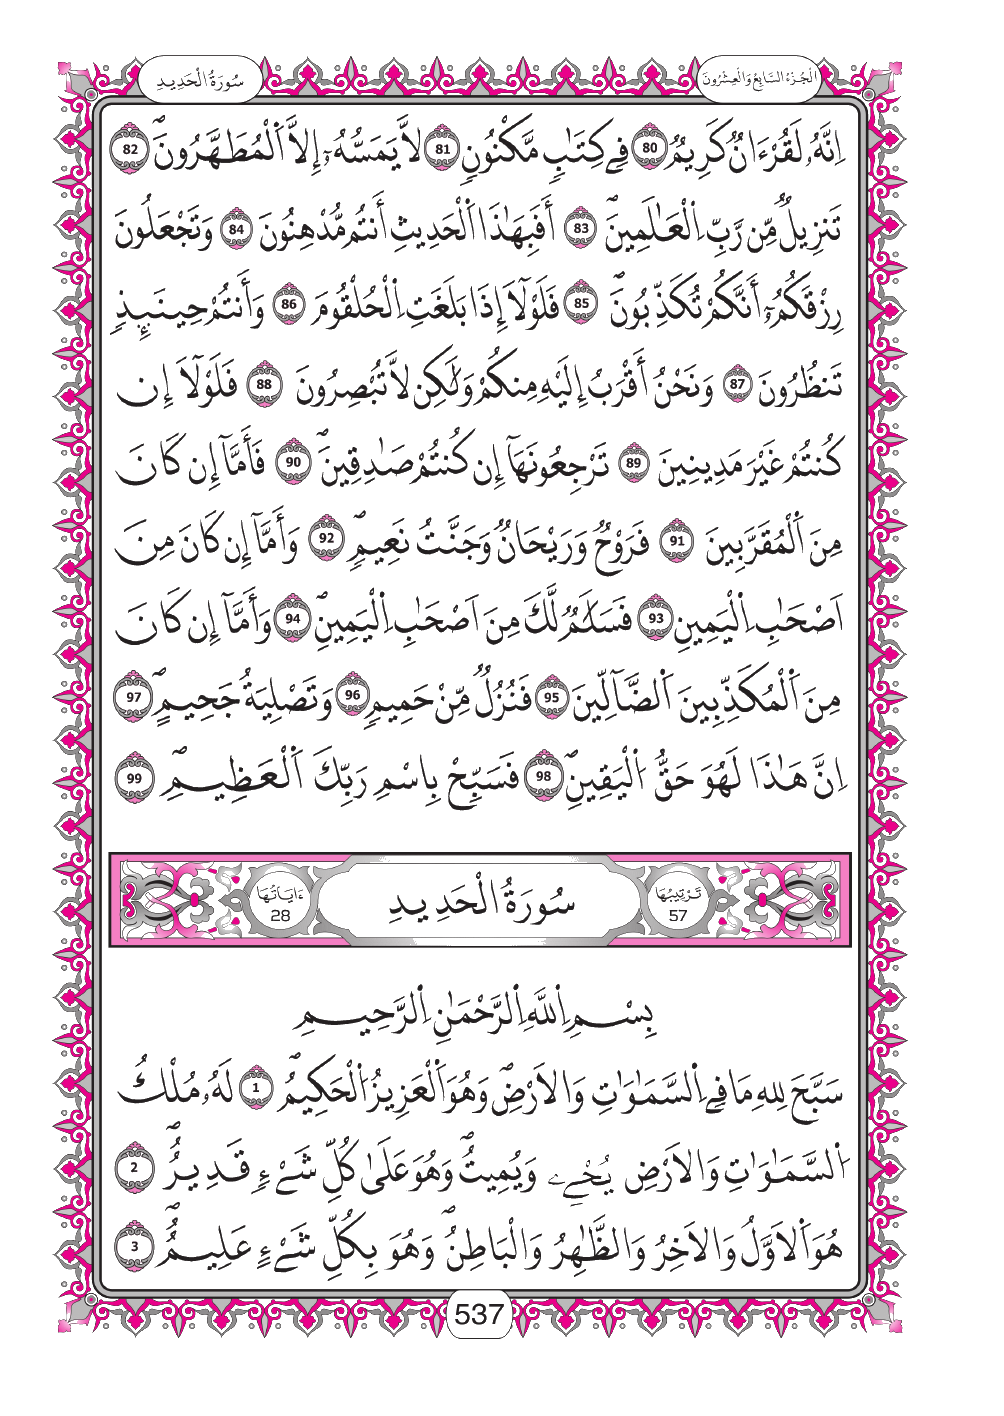 الْجُزْءُ السَّابِعُ وَالْعِشْرُونَ
سُورَةُ الْحَدِيدِ
اِنَّهُۥ لَقُرْءَانٌ كَرِيمٌ 80 فِے كِتَٰبٍ مَّكْنُونٍ 81 لَّا يَمَسُّهُۥٓ إِلَّا اَ۬لْمُطَهَّرُونَۖ 82
تَنزِيلٌ مِّن رَّبِّ اِ۬لْعَٰلَمِينَۖ 83 أَفَبِهَٰذَا اَ۬لْحَدِيثِ أَنتُم مُّدْهِنُونَ 84 وَتَجْعَلُونَ
رِزْقَكُمُۥٓ أَنَّكُمْ تُكَذِّبُونَۖ 85 فَلَوْلَآ إِذَا بَلَغَتِ اِ۬لْحُلْقُومَ 86 وَأَنتُمْ حِينَئِذٍ
تَنظُرُونَ 87 وَنَحْنُ أَقْرَبُ إِلَيْهِ مِنكُمْ وَلَٰكِن لَّا تُبْصِرُونَ 88 فَلَوْلَآ إِن
كُنتُمْ غَيْرَ مَدِينِينَ 89 تَرْجِعُونَهَآ إِن كُنتُمْ صَٰدِقِينَۖ 90 فَأَمَّآ إِن كَانَ
مِنَ اَ۬لْمُقَرَّبِينَ 91 فَرَوْحٌ وَرَيْحَانٌ وَجَنَّتُ نَعِيمٍۖ 92 وَأَمَّآ إِن كَانَ مِنَ
اَصْحَٰبِ اِ۬لْيَمِينِ 93 فَسَلَٰمٌ لَّكَ مِنَ اَصْحَٰبِ اِ۬لْيَمِينِۖ 94 وَأَمَّآ إِن كَانَ
مِنَ اَ۬لْمُكَذِّبِينَ اَ۬لضَّآلِّينَ 95 فَنُزُلٌ مِّنْ حَمِيمٍ 96 وَتَصْلِيَةُ جَحِيمٍۖ 97
اِنَّ هَٰذَا لَهُوَ حَقُّ اُ۬لْيَقِينِۖ 98 فَسَبِّحْ بِاسْمِ رَبِّكَ اَ۬لْعَظِيمِۖ 99
تَرْتِيبُهَا 57
سُورَةُ الْحَدِيدِ
ءَايَاتُهَا 28
بِسْمِ اِ۬للَّهِ اِ۬لرَّحْمَٰنِ اِ۬لرَّحِيمِ
سَبَّحَ لِلهِ مَا فِے اِ۬لسَّمَٰوَٰتِ وَالَارْضِۖ وَهُوَ اَ۬لْعَزِيزُ اُ۬لْحَكِيمُۖ 1 لَهُۥ مُلْكُ
اُ۬لسَّمَٰوَٰتِ وَالَارْضِ يُحْيِۦ وَيُمِيتُۖ وَهُوَ عَلَىٰ كُلِّ شَےْءٍ قَدِيرٌۖ 2
هُوَ اَ۬لَاوَّلُ وَالَاخِرُ وَالظَّٰهِرُ وَالْبَاطِنُۖ وَهُوَ بِكُلِّ شَےْءٍ عَلِيمٌۖ 3
537